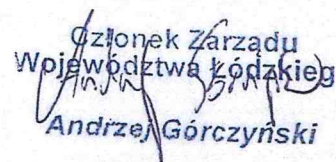 Członek Zarządu
Województwa Łódzkieg
Andrzej Górczyński